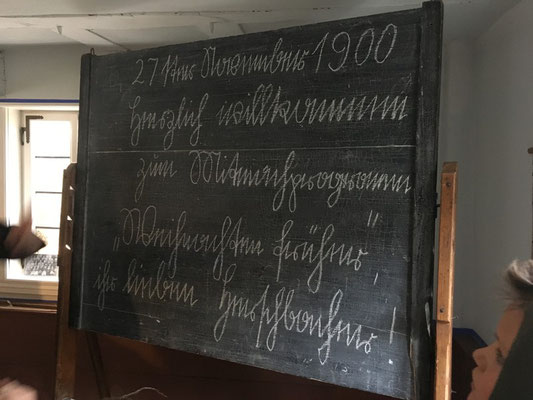 27ster November 1900
Herzlich willkommen
zum Mitmachprogramm
„Weihnachten früher",
ihr lieben Herschbacher!